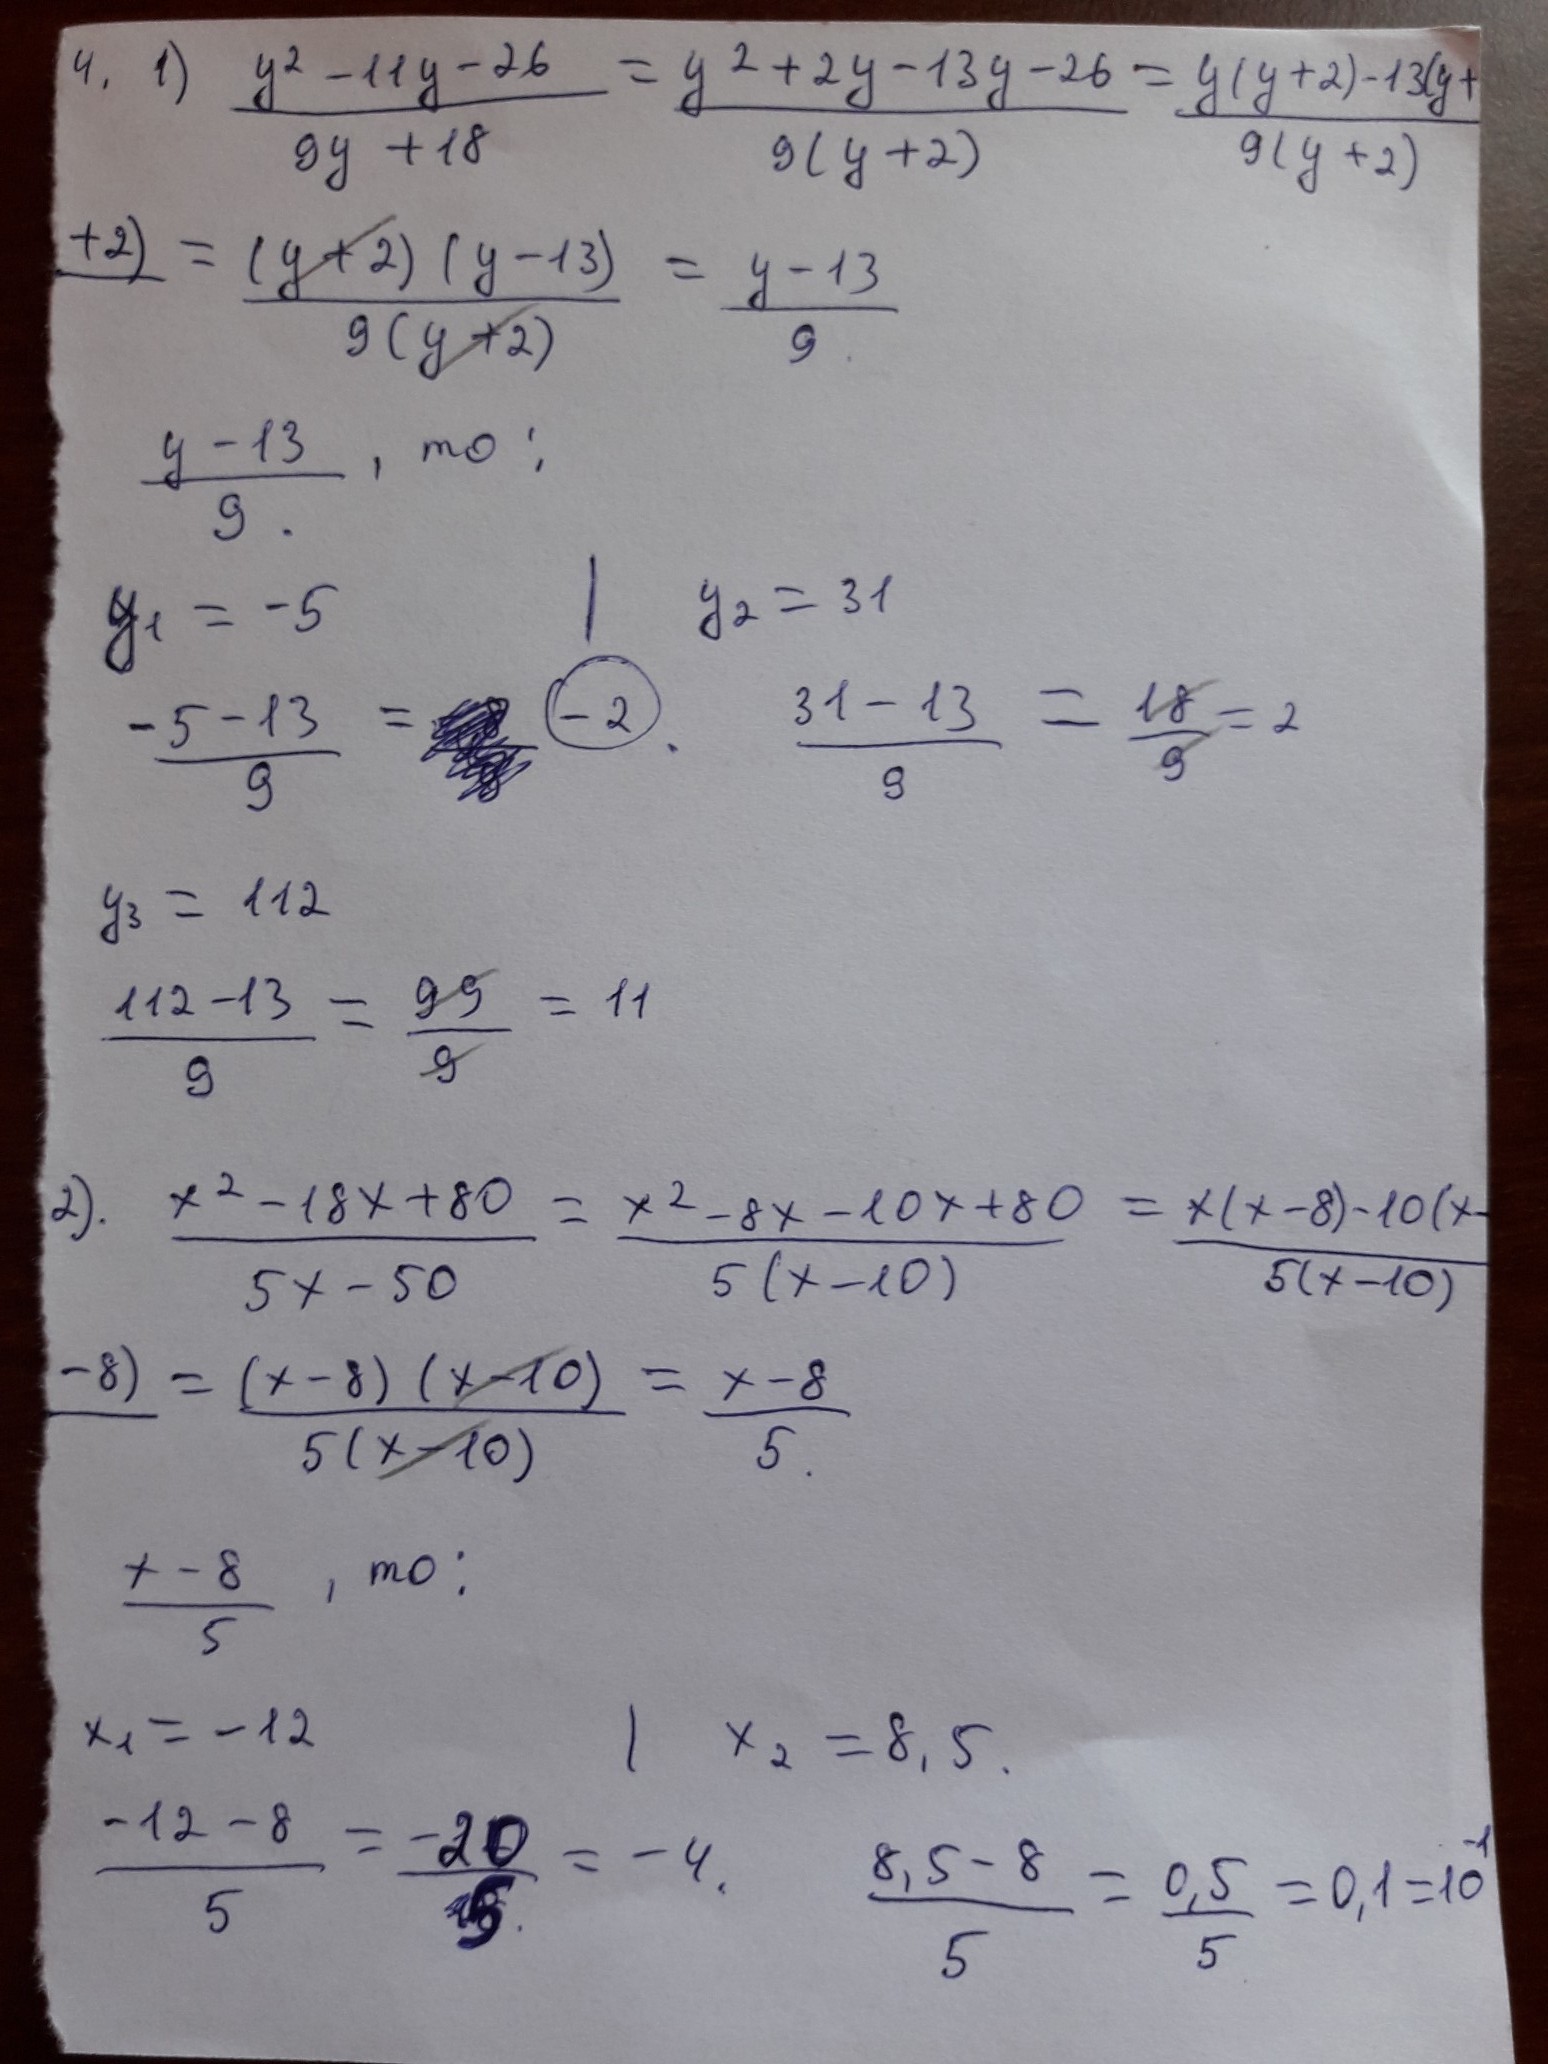 4. 1) (y² - 11y - 26)/(9y + 18) = (y² + 2y - 13y - 26)/(9(y + 2)) = (y(y + 2) - 13(y +)/(9(y + 2))
+2) = ((y + 2)(y - 13))/(9(y + 2)) = (y - 13)/9.
(y - 13)/9., то:
y₁ = -5 | y₂ = 31
(-5 - 13)/9 = -2. (31 - 13)/9 = 18/9 = 2
y₃ = 112
(112 - 13)/9 = 99/9 = 11
2). (x² - 18x + 80)/(5x - 50) = (x² - 8x - 10x + 80)/(5(x - 10)) = (x(x - 8) - 10(x -)/(5(x - 10))
-8) = ((x - 8)(x - 10))/(5(x - 10)) = (x - 8)/5.
(x - 8)/5, то:
x₁ = -12 | x₂ = 8,5.
(-12 - 8)/5 = -20/5. = -4. (8,5 - 8)/5 = 0,5/5 = 0,1 = 10⁻¹